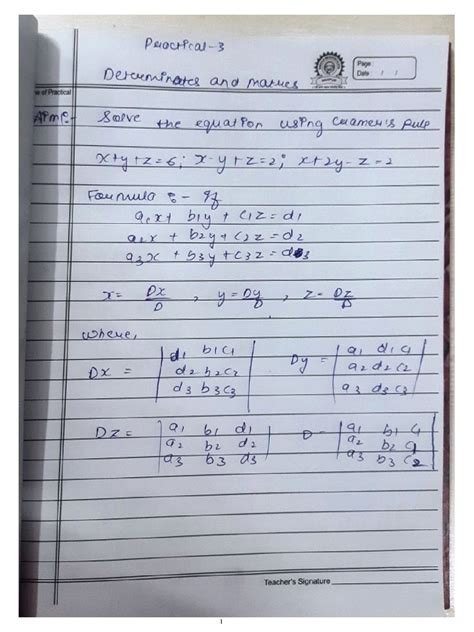 Practical-3
Determinates and matrices
Page :
Date / /
e of Practical
Aim:- Solve the equation using Cramer's Rule
x+y+z=6; x-y+z=2; x+2y-z=2
Formula :- If
a1x+ b1y + c1z = d1
a2x + b2y + c2z = d2
a3x + b3y + c3z = d3
x= Dx/D , y= Dy/D , z- Dz/D
where,
Dx = | d1 b1 c1 | Dy = | a1 d1 c1 |
| d2 b2 c2 | | a2 d2 c2 |
| d3 b3 c3 | | a3 d3 c3 |
Dz = | a1 b1 d1 | D- | a1 b1 c1 |
| a2 b2 d2 | | a2 b2 c2 |
| a3 b3 d3 | | a3 b3 c2 |
Teacher's Signature